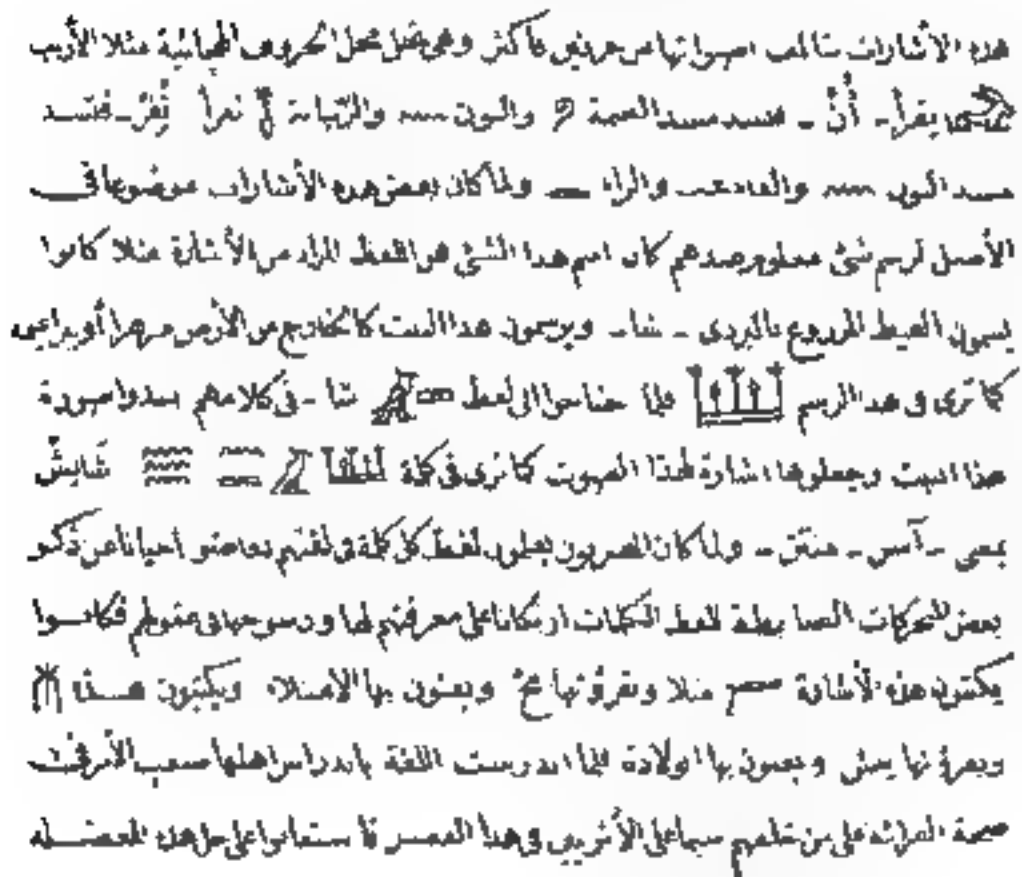 هذه الأشارات تتألف اصواتها من حرفين فأكثر وهى تحل محل الحروف الهجائية مثلا الأرنب
يقرأ - أُنْ - فتسد مسد الضمة والنون والربابة تقرأ نُفِرْ - فتسد
مسد النون والفاء والراء ولما كان بعض هذه الأشارات موضوعا فى
الأصل لرسم شئ معلوم عندهم كان اسم هذا الشئ هو اللفظ المراد من الأشارة مثلا كانوا
يسمون الغيط المزروع بالبردى - شا - ويرسمون هذا النبت كالخارج من الأرض
كما ترى فى هذا الرسم فلما احتاجوا الى لفظ شا - فى كلامهم صورة
هذا النبت وجعلوها اشارة لهذا الصوت كما ترى فى كلمة
بمعنى - آسن - منتن - ولما كان المصريون يعلمون لفظ كل كلمة فى لغتهم احيانا عن ذكر
بعض الحركات الضابطة للفظ الكلمات ارتكانا على معرفتهم لها ورسوخها فى عقولهم فكانوا
يكتبون هذه الأشارة مثلا ويقرؤنها مح ويعنون بها الامتلاء ويكتبون هذا
ويقرؤنها مس ويعنون بها الولادة فلما اندرست اللغة باندراس اهلها صعب الأمر فى
صحة القرائه على من خلفهم سيما على الأثريين فى هذا العصر فاستعانوا على حل هذه المعضله